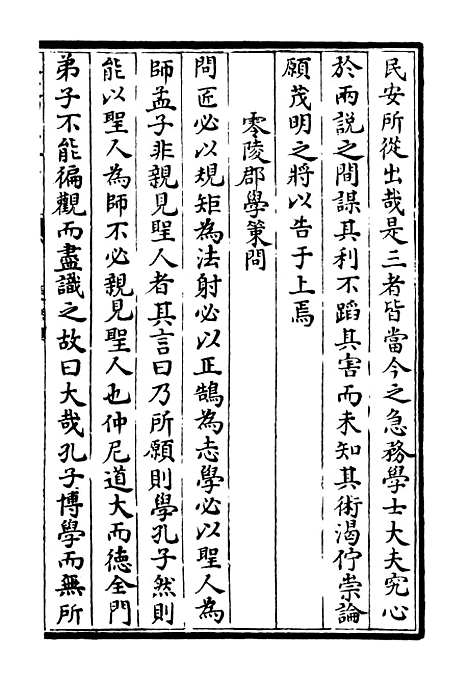 民安所從出哉是三者皆當今之急務學士大夫究心
於兩説之間謀其利不蹈其害而未知其術渴佇崇論
願茂明之將以告于上焉
零陵郡學策問
問匠必以規矩為法射必以正鵠為志學必以聖人為
師孟子非親見聖人者其言曰乃所願則學孔子然則
能以聖人為師不必親見聖人也仲尼道大而徳全門
弟子不能徧觀而盡識之故曰大哉孔子博學而無所